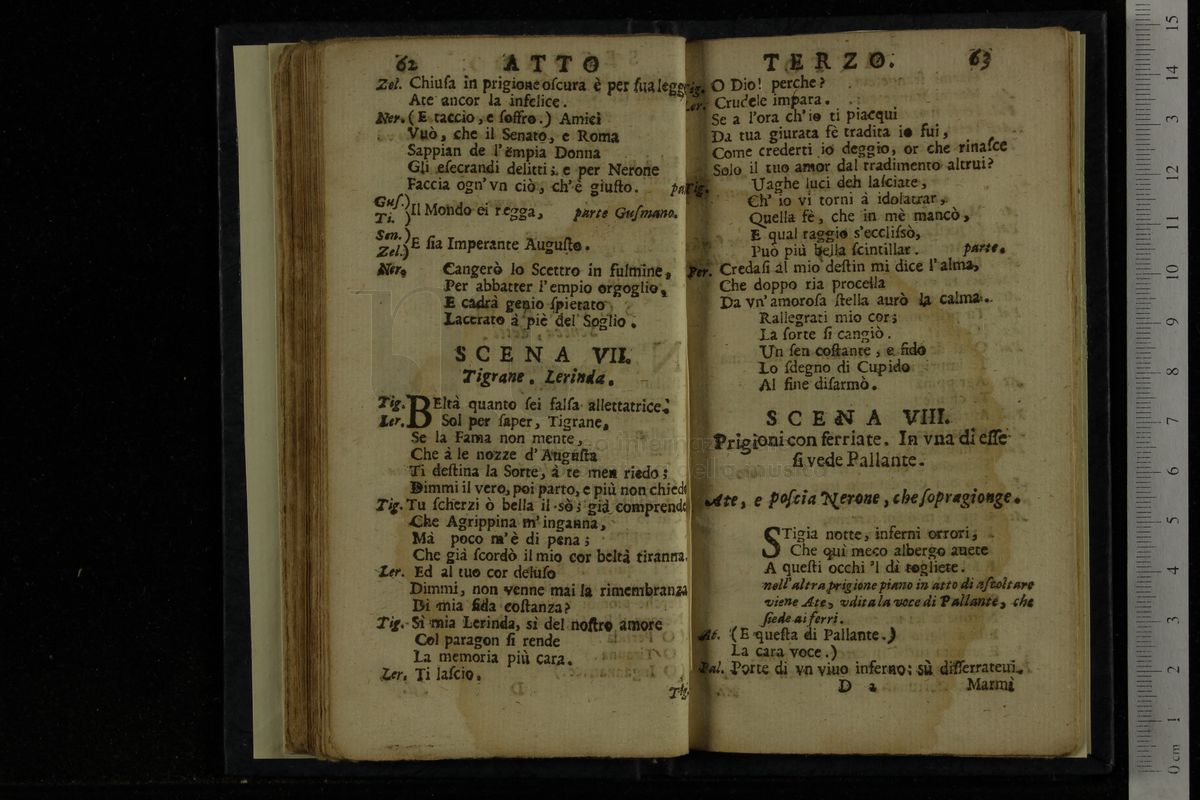 62 ATTO
Zel. Chiuſa in prigione oſcura è per ſua legge
Ate ancor la infelice.
Ner. (E taccio, e ſoffro.) Amici
Vuò, che il Senato, e Roma
Sappian de l'empia Donna
Gli eſecrandi delitti; e per Nerone
Faccia ogn'vn ciò, ch'è giuſto. pa
Guſ.)
Ti. ) Il Mondo ei regga, parte Guſmano.
Sen.)
Zel.) E ſia Imperante Auguſto.
Ner. Cangerò lo Scettro in fulmine,
Per abbatter l'empio orgoglio,
E cadrà genio ſpietato
Lacerato à piè del Soglio.
SCENA VII.
Tigrane. Lerinda.
Tig. BEltà quanto ſei falſa allettatrice.
Ler. Sol per ſaper, Tigrane,
Se la Fama non mente,
Che à le nozze d'Auguſta
Ti deſtina la Sorte, à te men riedo;
Dimmi il vero, poi parto, e più non chiedo
Tig. Tu ſcherzi ò bella il sò; già comprende
Che Agrippina m'inganna,
Mà poco m'è di pena;
Che già ſcordò il mio cor beltà tiranna.
Ler. Ed al tuo cor deluſo
Dimmi, non venne mai la rimembranza
Di mia fida coſtanza?
Tig. Sì mia Lerinda, sì del noſtro amore
Col paragon ſi rende
La memoria più cara.
Ler. Ti laſcio.
Tig.
TERZO. 63
ig. O Dio! perche?
Ler. Crudele impara.
Se a l'ora ch'io ti piacqui
Da tua giurata fè tradita io fui,
Come crederti io deggio, or che rinaſce
Solo il tuo amor dal tradimento altrui?
Tig. Uaghe luci deh laſciate,
Ch' io vi torni à idolatrar,
Quella fè, che in mè mancò,
E qual raggio s'eccliſsò,
Può più bella ſcintillar. parte.
Ler. Credaſi al mio deſtin mi dice l'alma,
Che doppo ria procella
Da vn'amoroſa ſtella aurò la calma.
Rallegrati mio cor;
La ſorte ſi cangiò.
Un ſen coſtante, e fido
Lo ſdegno di Cupido
Al fine diſarmò.
SCENA VIII.
Prigioni con ferriate. In vna di eſſe
ſi vede Pallante.
Ate, e poſcia Nerone, che ſopragionge.
STigia notte, inferni orrori,
Che quì meco albergo auete
A queſti occhi 'l dì togliete.
nell'altra prigione piano in atto di aſcoltare
viene Ate, vdita la voce di Pallante, che
ſiede ai ferri.
At. (E queſta di Pallante.)
La cara voce.)
Pal. Porte di vn viuo inferno; sù diſſerrateui.
D 2 Marmi